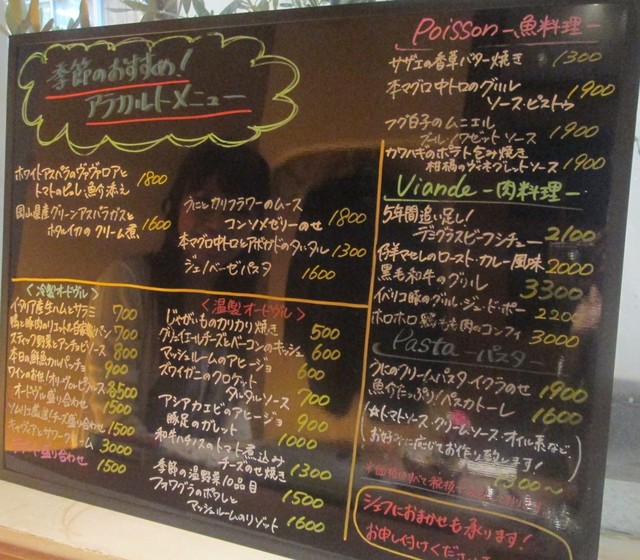 季節のおすすめ!
アラカルトメニュー
ホワイトアスパラのヴァヴァロアと
トマトのピュレ 魚介添え 1800
岡山県産グリーンアスパラガスと
ホタルイカのクリーム煮 1600
うにとカリフラワーのムース
コンソメゼリーのせ 1800
本マグロ中トロとアボカドのタルタル 1300
ジェノベーゼパスタ 1600
<冷製オードヴル>
イタリア産生ハムとサラミ 700
鴨と豚肉のリエット 700
スティック野菜とアンチョビソース 800
本日の鮮魚カルパッチョ 900
ワインのお供!オリーヴのピクルス 500
オードヴル盛り合わせ 1500
ソムリエ厳選!チーズ盛り合わせ 1500
キャヴィアとサワークリーム 3000
盛り合わせ 1500
<温製オードヴル>
じゃがいものカリカリ焼き 500
グリュイエールチーズとベーコンのキッシュ 600
マッシュルームのアヒージョ 600
ズワイガニのクロケット
タルタルソース 700
アシアカエビのアヒージョ 900
豚足のガレット 1000
和牛ハチノスのトマト煮込み
チーズのせ焼き 1300
季節の温野菜10品目 1500
フォワグラのポワレと
マッシュルームのリゾット 1600
Poisson -魚料理-
サザエの香草バター焼き 1300
本マグロ中トロのグリル
ソース・ピストゥ 1900
フグ白子のムニエル
ブール・ノワゼットソース 1900
カワハギのポテト包み焼き
柑橘のヴィネグレットソース 1900
Viande -肉料理-
5年間追い足し!
デミグラスビーフシチュー 2100
仔羊モモしのロースト・カレー風味 2000
黒毛和牛のグリル 3300
イベリコ豚のグリル・ジュ・ド・ポー 2200
ホロホロ鶏もも肉のコンフィ 3000
Pasta パスタ-
うにのクリームパスタ イクラのせ 1900
魚介たっぷり!ペスカトーレ 1600
(☆トマトソース・クリームソース・オイル系など
お好みに応じてお作り致します! )
1300~
シェフにおまかせも承ります!
お申し付けくだ